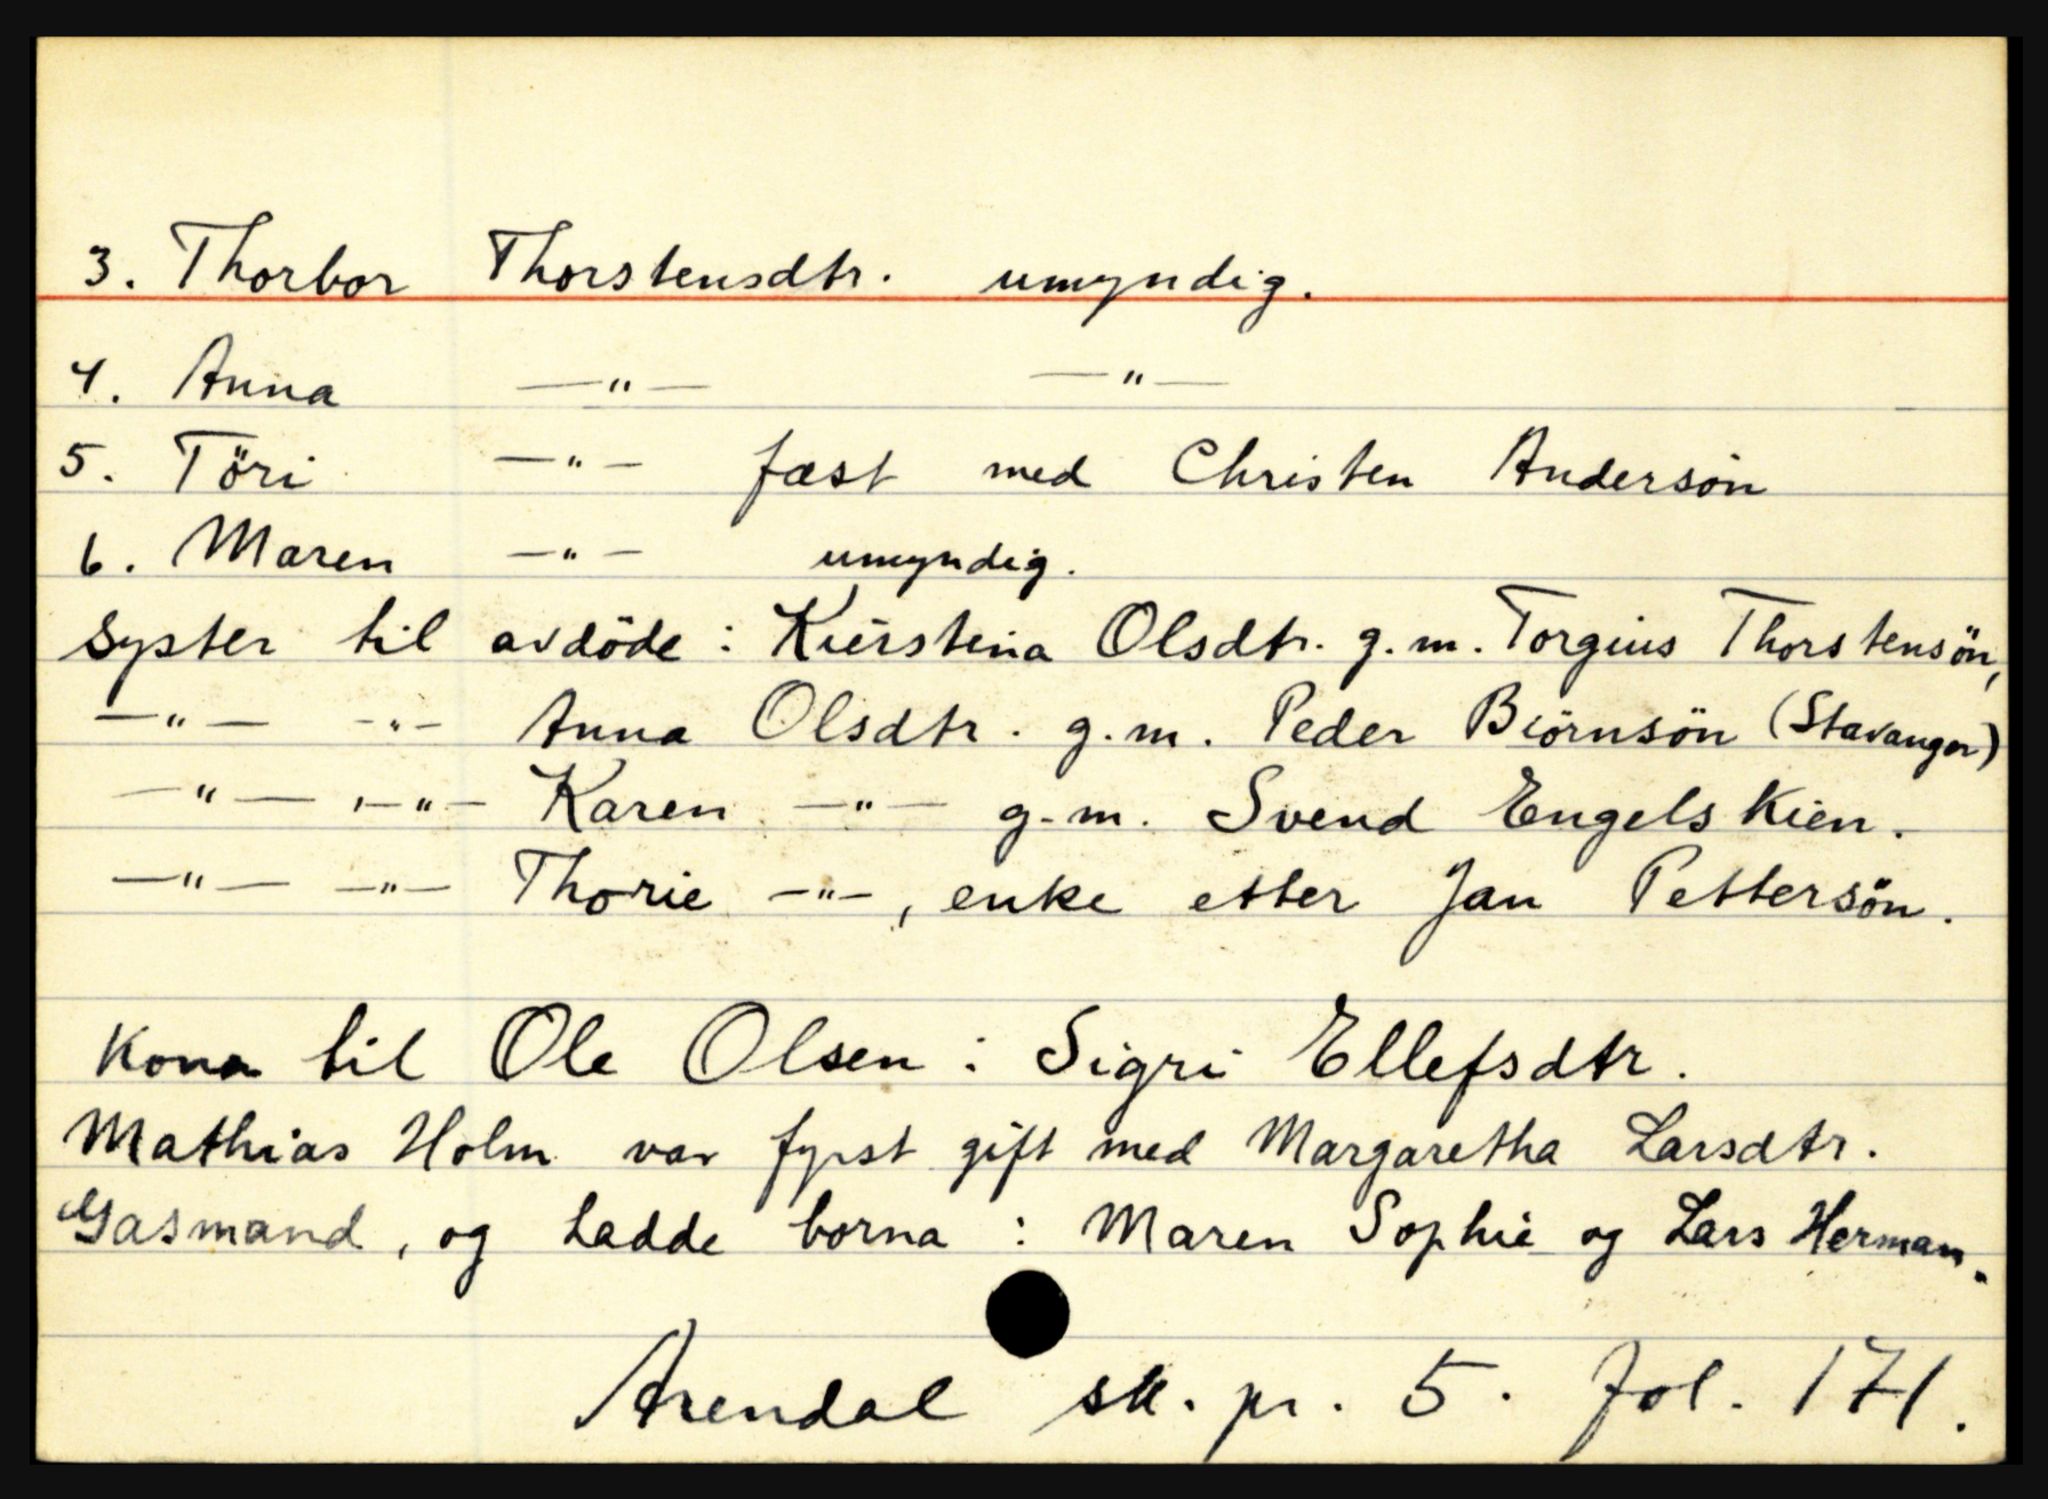 3. Thorbor Thorstensdtr. umyndig.
4. Anna —"— —"—
5. Töri —"— fæst med Christen Andersön
6. Maren —"— umyndig.
Syster til avdöde : Kierstina Olsdtr. g.m. Torgius Thorstensön,
—"— —"— Anna Olsdtr. g.m. Peder Biörnsön (Stavanger)
—"— —"— Karen —"— g.m. Svend Engelskien.
—"— —"— Thorie —"—, enke etter Jan Pettersön.
Kona til Ole Olsen : Sigri Ellefsdtr.
Mathias Holm var fyrst gift med Margaretha Larsdtr.
Gasmand, og hadde borna : Maren Sophie og Lars Herman.
Arendal sk. pr. 5. fol. 171.